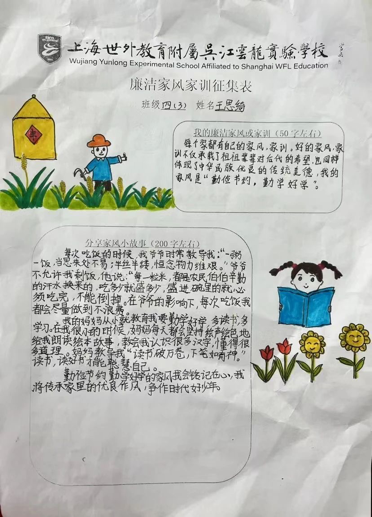 上海世外教育附属吴江云龙实验学校
Wujiang Yunlong Experimental School Affiliated to Shanghai WFL Education
廉洁家风家训征集表
班级 四(3) 姓名 王思
我的廉洁家风或家训（50字左右）
每个家都有自己的家风、家训。好的家风、家
训不仅承载了祖祖辈辈对后代的希望,也同样
体现了中华民族优良的传统美德，我的
家风是“勤俭节约，勤学好学”。
分享家风小故事（200字左右）
每次吃饭的时候，我爷爷时常教导我：“一粥
一饭，当思来处不易；半丝半缕，恒念物力维艰。”爷爷
不允许我剩饭，他说：“每一粒米，都是农民伯伯辛勤
的汗水换来的，吃多少就盛多少，盛进碗里的就必
须吃完，不能倒掉。在爷爷的影响下，每次吃饭我
都会尽量做到不浪费。
我的妈妈从小就教育我要勤学好学，多读书，多
学习。在我很小的时候，妈妈每天都会坚持
给我朗读绘本故事，教会我认识很多汉字，懂得很
多道理。妈妈教导我“读书破万卷，下笔如有神”，
读书，读好书
勤俭节约，勤学好学的家风我会铭记在心，我
将传承家里的优良作风，争作时代好少年。